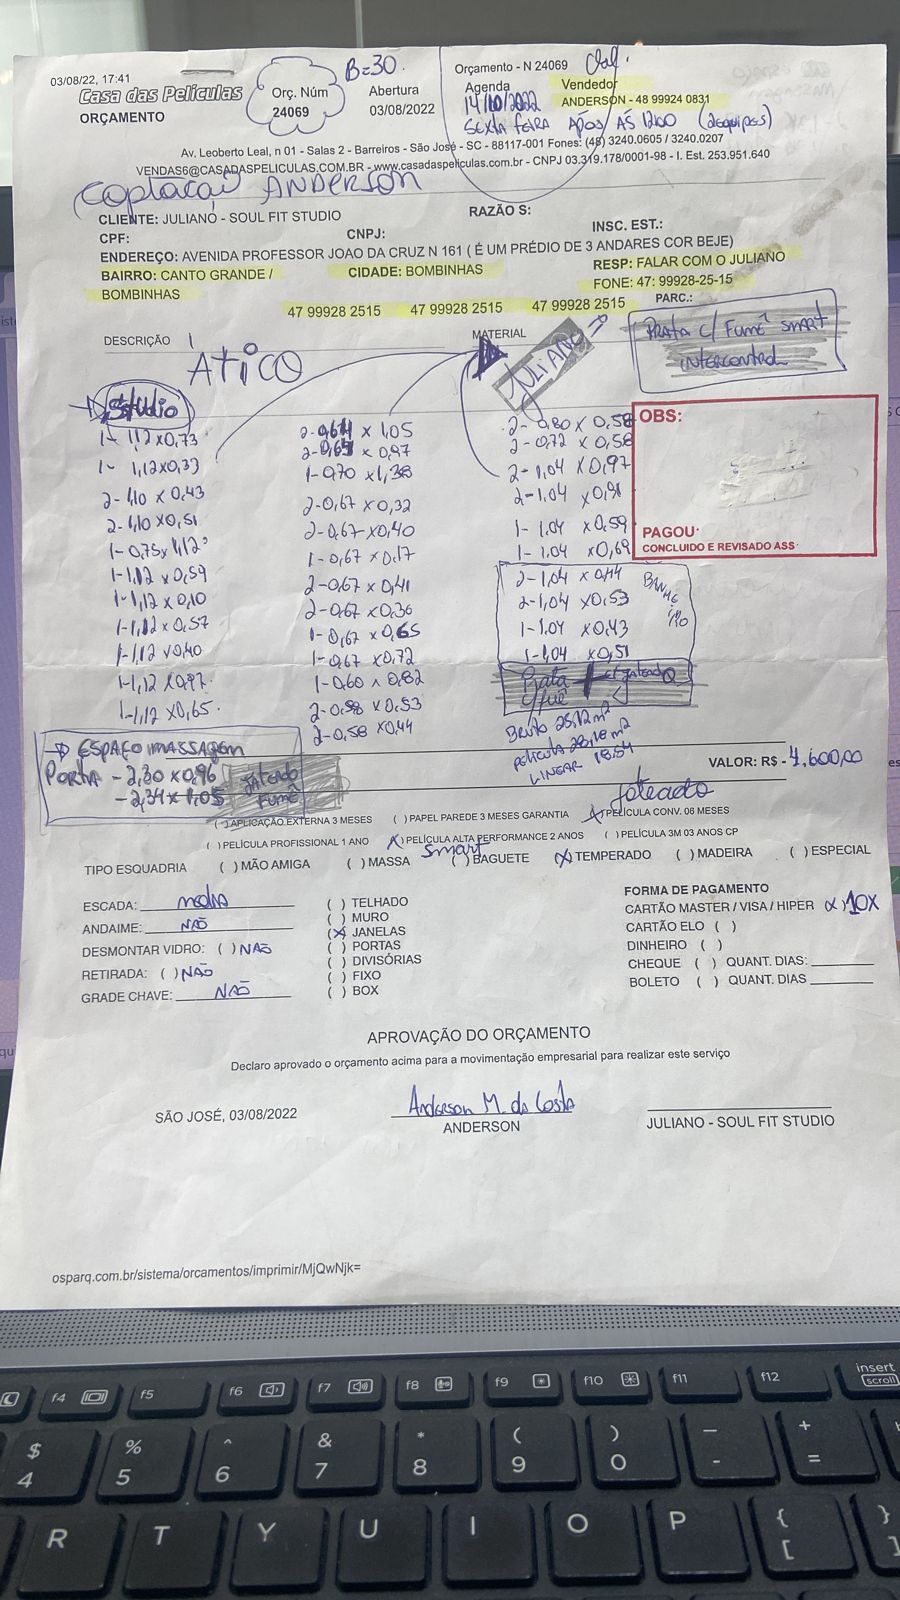 03/08/22, 17:41
Casa das Películas
ORÇAMENTO
Orç. Núm
24069
B=30
Abertura
03/08/2022
Orçamento - N 24069
Agenda
14/10/2022
Vendedor
ANDERSON - 48 99924 0831
SEXTA FEIRA APÓS ÀS 12:00 (2 EQUIPES)
Av. Leoberto Leal, n 01 - Salas 2 - Barreiros - São José - SC - 88117-001 Fones: (48) 3240.0605 / 3240.0207
VENDAS6@CASADASPELICULAS.COM.BR - www.casadaspeliculas.com.br - CNPJ 03.319.178/0001-98 - I. Est. 253.951.640
Coptaçaĩ ANDERSON
CLIENTE: JULIANO - SOUL FIT STUDIO
RAZÃO S:
CPF:
CNPJ:
INSC. EST.:
ENDEREÇO: AVENIDA PROFESSOR JOAO DA CRUZ N 161 ( É UM PRÉDIO DE 3 ANDARES COR BEJE)
BAIRRO: CANTO GRANDE /
BOMBINHAS
CIDADE: BOMBINHAS
RESP: FALAR COM O JULIANO
FONE: 47: 99928-25-15
47 99928 2515 47 99928 2515 47 99928 2515
PARC.:
DESCRIÇÃO
MATERIAL
JULIANO
PRATA C/ FUMÊ SMART
INTERCONTROL
ATICO
STUDIO
1- 1,12x0,73
1- 1,12x0,33
2- 1,10 x 0,43
2- 1,10 x 0,51
1- 0,75 x 1,12
1- 1,12 x 0,59
1- 1,12 x 0,10
1- 1,12 x 0,57
1- 1,12 x 0,40
1- 1,12 x 0,97
1- 1,12 x 0,65
2- 0,64 x 1,05
2- 0,67 x 0,97
1- 0,70 x 1,38
2- 0,67 x 0,32
2- 0,67 x 0,40
1- 0,67 x 0,17
2- 0,67 x 0,41
2- 0,67 x 0,36
1- 0,67 x 0,65
1- 0,67 x 0,72
1- 0,60 x 0,82
2- 0,58 x 0,53
2- 0,58 x 0,44
2- 0,80 x 0,58
2- 0,72 x 0,58
2- 1,04 x 0,97
2- 1,04 x 0,91
1- 1,04 x 0,59
1- 1,04 x 0,69
2- 1,04 x 0,44
2- 1,04 x 0,53
1- 1,04 x 0,43
1- 1,04 x 0,51
BANHEIRO
Prata +
OBS:
PAGOU
CONCLUIDO E REVISADO ASS
Bruto 25,12 m²
película 28,18 m²
LINEAR 18.54
→ ESPAÇO MASSAGEM
PORTA - 2,30 x 0,96
- 2,34 x 1,05
JATEADO
FUMÊ
VALOR: R$ - 4,600,00
Jateado
( ) APLICAÇÃO EXTERNA 3 MESES ( ) PAPEL PAREDE 3 MESES GARANTIA (X) PELÍCULA CONV. 06 MESES
( ) PELÍCULA PROFISSIONAL 1 ANO (X) PELÍCULA ALTA PERFORMANCE 2 ANOS ( ) PELÍCULA 3M 03 ANOS CP
smart
TIPO ESQUADRIA ( ) MÃO AMIGA ( ) MASSA ( ) BAGUETE (X) TEMPERADO ( ) MADEIRA ( ) ESPECIAL
ESCADA: media
ANDAIME: NÃO
DESMONTAR VIDRO: ( ) NÃO
RETIRADA: ( ) NÃO
GRADE CHAVE: NÃO
( ) TELHADO
( ) MURO
(X) JANELAS
( ) PORTAS
( ) DIVISÓRIAS
( ) FIXO
( ) BOX
FORMA DE PAGAMENTO
CARTÃO MASTER / VISA / HIPER (X) 10X
CARTÃO ELO ( )
DINHEIRO ( )
CHEQUE ( ) QUANT. DIAS:
BOLETO ( ) QUANT. DIAS
APROVAÇÃO DO ORÇAMENTO
Declaro aprovado o orçamento acima para a movimentação empresarial para realizar este serviço
SÃO JOSÉ, 03/08/2022
Anderson M. da Costa
ANDERSON
JULIANO - SOUL FIT STUDIO
osparq.com.br/sistema/orcamentos/imprimir/MjQwNjk=
f4 f5 f6 f7 f8 f9 f10 f11 f12 insert
scroll
$ % ^ & * ( ) _ +
4 5 6 7 8 9 0 - =
R T Y U I O P { [ } ]